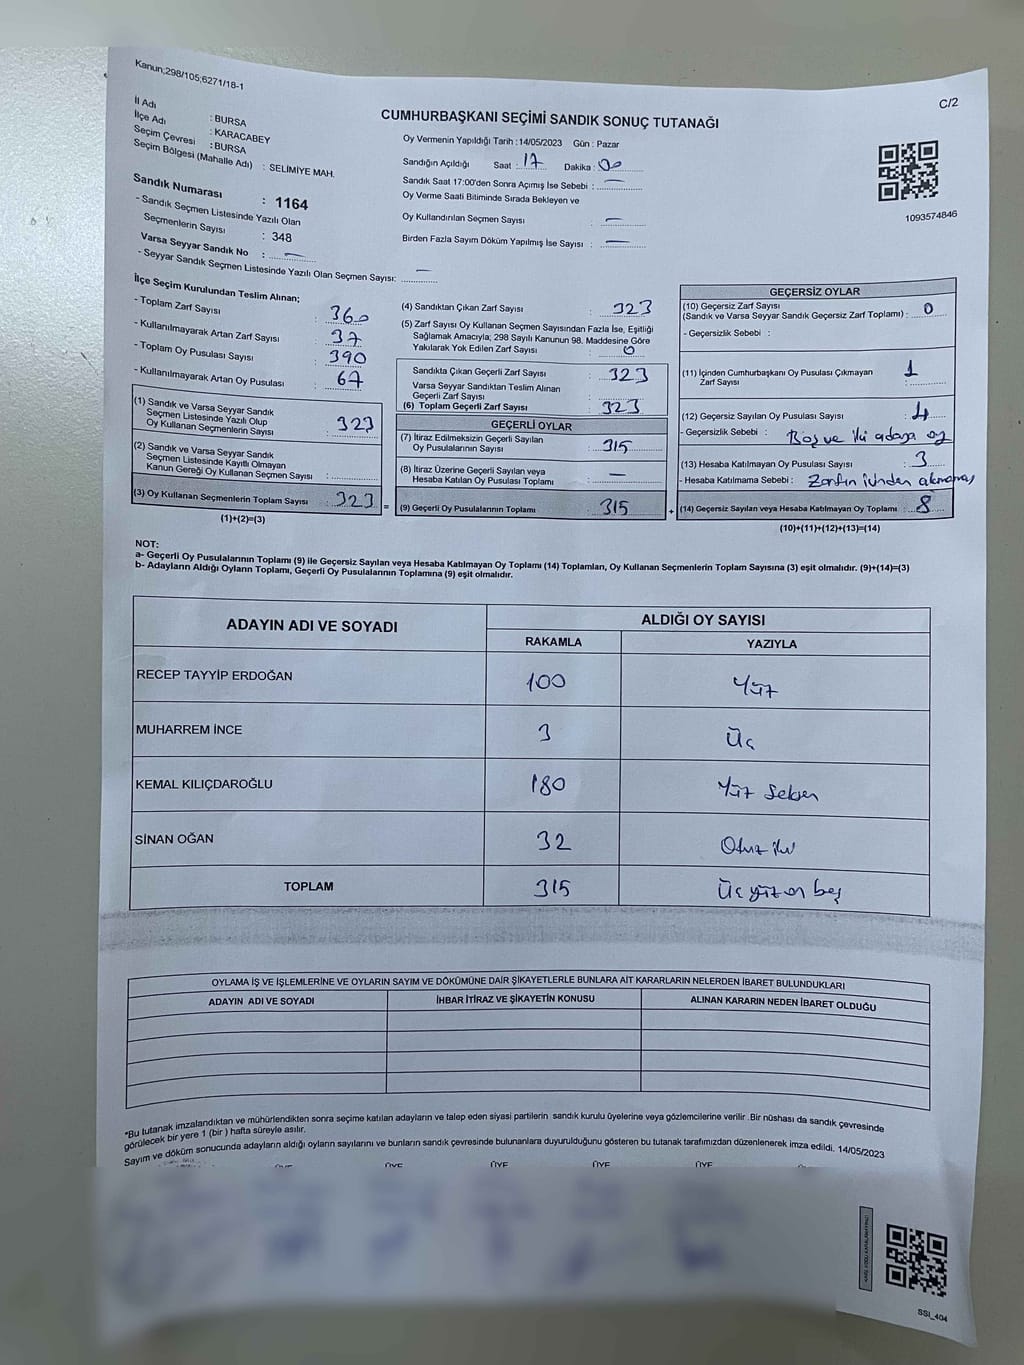 Kanun;298/105;6271/18-1
C/2
CUMHURBAŞKANI SEÇİMİ SANDIK SONUÇ TUTANAĞI
İl Adı : BURSA
İlçe Adı : KARACABEY
Seçim Çevresi : BURSA
Seçim Bölgesi (Mahalle Adı) : SELİMİYE MAH.
Sandık Numarası : 1164
- Sandık Seçmen Listesinde Yazılı Olan
Seçmenlerin Sayısı : 348
Varsa Seyyar Sandık No : —
- Seyyar Sandık Seçmen Listesinde Yazılı Olan Seçmen Sayısı: —
Oy Vermenin Yapıldığı Tarih :14/05/2023 Gün : Pazar
Sandığın Açıldığı Saat : 17 Dakika : 00
Sandık Saat 17:00'den Sonra Açımış İse Sebebi : —
Oy Verme Saati Bitiminde Sırada Bekleyen ve
Oy Kullandırılan Seçmen Sayısı : —
Birden Fazla Sayım Döküm Yapılmış İse Sayısı : —
1093574846
İlçe Seçim Kurulundan Teslim Alınan;
- Toplam Zarf Sayısı : 360
- Kullanılmayarak Artan Zarf Sayısı : 37
- Toplam Oy Pusulası Sayısı : 390
- Kullanılmayarak Artan Oy Pusulası : 67
(1) Sandık ve Varsa Seyyar Sandık
Seçmen Listesinde Yazılı Olup
Oy Kullanan Seçmenlerin Sayısı : 323
(2) Sandık ve Varsa Seyyar Sandık
Seçmen Listesinde Kayıtlı Olmayan
Kanun Gereği Oy Kullanan Seçmen Sayısı :
(3) Oy Kullanan Seçmenlerin Toplam Sayısı : 323 =
(1)+(2)=(3)
(4) Sandıktan Çıkan Zarf Sayısı : 323
(5) Zarf Sayısı Oy Kullanan Seçmen Sayısından Fazla İse, Eşitliği
Sağlamak Amacıyla; 298 Sayılı Kanunun 98. Maddesine Göre
Yakılarak Yok Edilen Zarf Sayısı : 0
Sandıkta Çıkan Geçerli Zarf Sayısı : 323
Varsa Seyyar Sandıktan Teslim Alınan
Geçerli Zarf Sayısı :
(6) Toplam Geçerli Zarf Sayısı : 323
GEÇERLİ OYLAR
(7) İtiraz Edilmeksizin Geçerli Sayılan
Oy Pusulalarının Sayısı : 315
(8) İtiraz Üzerine Geçerli Sayılan veya
Hesaba Katılan Oy Pusulası Toplamı : —
(9) Geçerli Oy Pusulalarının Toplamı : 315 +
GEÇERSİZ OYLAR
(10) Geçersiz Zarf Sayısı
(Sandık ve Varsa Seyyar Sandık Geçersiz Zarf Toplamı) : 0
- Geçersizlik Sebebi :
(11) İçinden Cumhurbaşkanı Oy Pusulası Çıkmayan
Zarf Sayısı : 1
(12) Geçersiz Sayılan Oy Pusulası Sayısı : 4
- Geçersizlik Sebebi : Boş ve iki adaya oy
(13) Hesaba Katılmayan Oy Pusulası Sayısı : 3
- Hesaba Katılmama Sebebi : Zarfın içinden çıkmaması
(14) Geçersiz Sayılan veya Hesaba Katılmayan Oy Toplamı : 8
(10)+(11)+(12)+(13)=(14)
NOT:
a- Geçerli Oy Pusulalarının Toplamı (9) ile Geçersiz Sayılan veya Hesaba Katılmayan Oy Toplamı (14) Toplamları, Oy Kullanan Seçmenlerin Toplam Sayısına (3) eşit olmalıdır. (9)+(14)=(3)
b- Adayların Aldığı Oyların Toplamı, Geçerli Oy Pusulalarının Toplamına (9) eşit olmalıdır.
ADAYIN ADI VE SOYADI
ALDIĞI OY SAYISI
RAKAMLA YAZIYLA
RECEP TAYYİP ERDOĞAN 100 Yüz
MUHARREM İNCE 3 Üç
KEMAL KILIÇDAROĞLU 180 Yüz Seksen
SİNAN OĞAN 32 Otuz iki
TOPLAM 315 Üç yüz on beş
OYLAMA İŞ VE İŞLEMLERİNE VE OYLARIN SAYIM VE DÖKÜMÜNE DAİR ŞİKAYETLERLE BUNLARA AİT KARARLARIN NELERDEN İBARET BULUNDUKLARI
ADAYIN ADI VE SOYADI İHBAR İTİRAZ VE ŞİKAYETİN KONUSU ALINAN KARARIN NEDEN İBARET OLDUĞU
*Bu tutanak imzalandıktan ve mühürlendikten sonra seçime katılan adayların ve talep eden siyasi partilerin sandık kurulu üyelerine veya gözlemcilerine verilir .Bir nüshası da sandık çevresinde
görülecek bir yere 1 (bir ) hafta süreyle asılır.
Sayım ve döküm sonucunda adayların aldığı oyların sayılarını ve bunların sandık çevresinde bulunanlara duyurulduğunu gösteren bu tutanak tarafımızdan düzenlenerek imza edildi. 14/05/2023
ÜYE ÜYE ÜYE ÜYE ÜYE
SSI_404